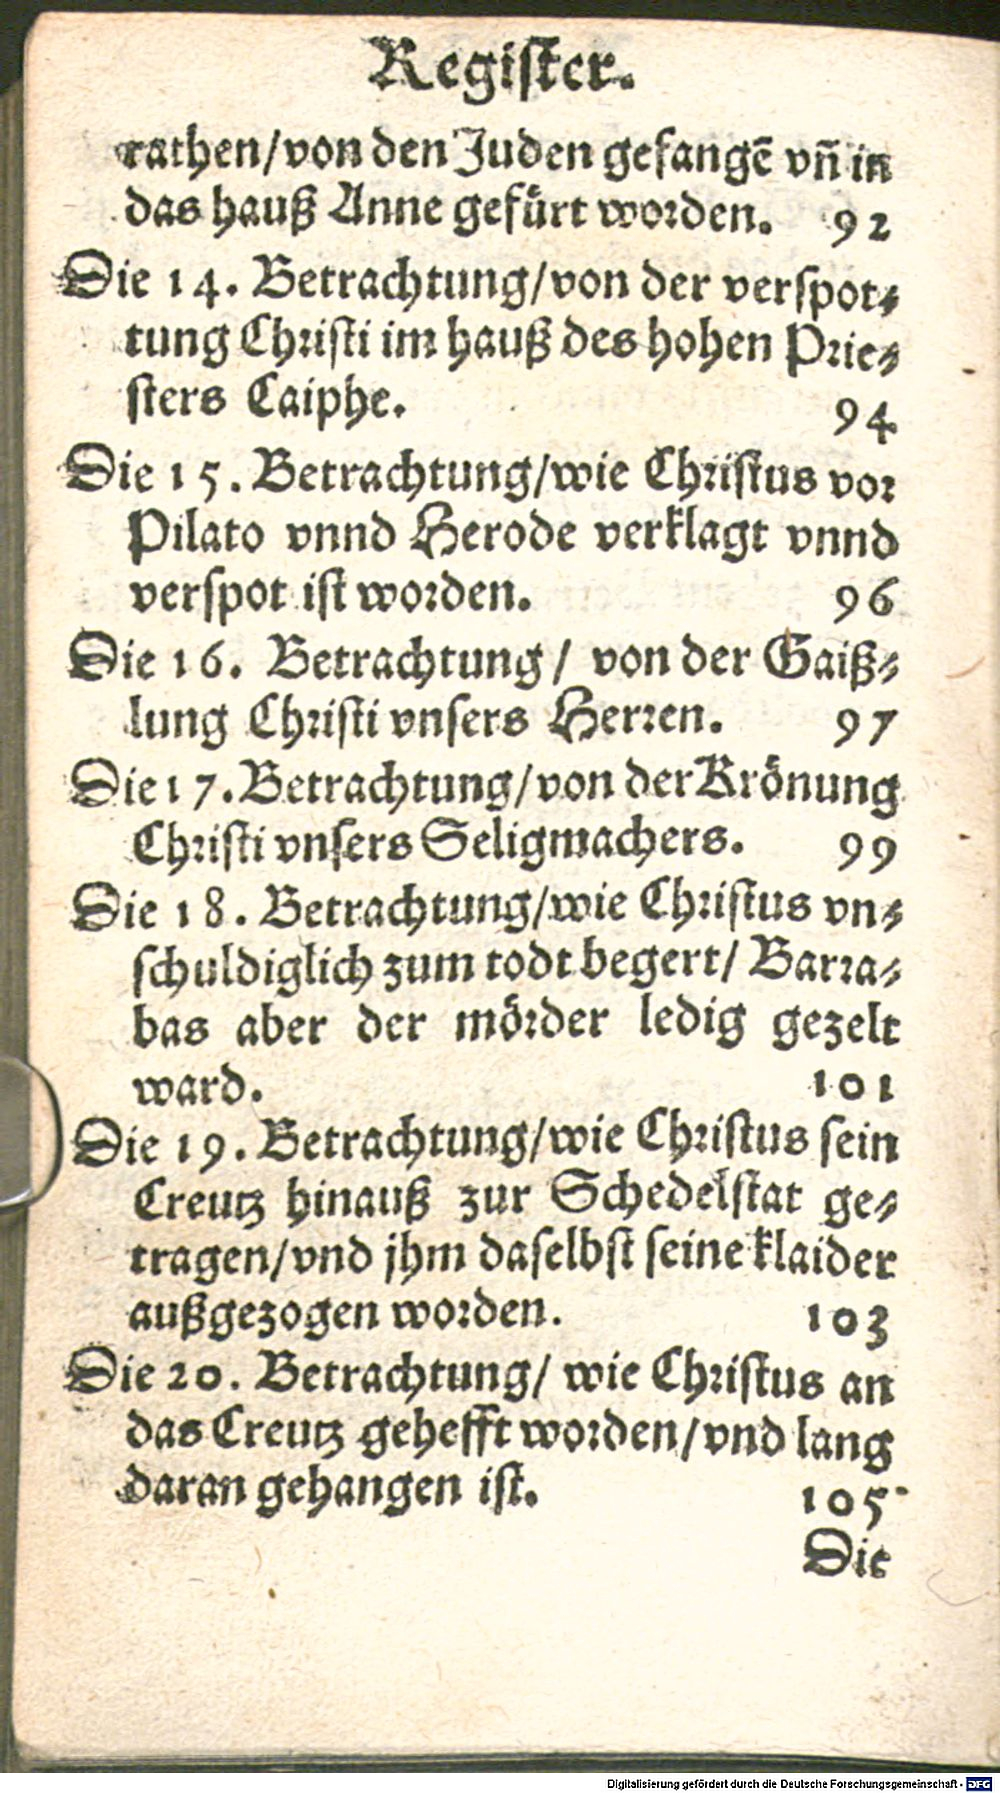 Register.
rathen/von den Juden gefangẽ vñ in
das hauß Anne gefürt worden. 92
Die 14. Betrachtung/von der verspot⸗
tung Christi im hauß des hohen Prie⸗
sters Caiphe. 94
Die 15. Betrachtung/wie Christus vor
Pilato vnnd Herode verklagt vnnd
verspot ist worden. 96
Die 16. Betrachtung/ von der Gaiß⸗
lung Christi vnsers Herren. 97
Die 17. Betrachtung/von der Krönung
Christi vnsers Seligmachers. 99
Die 18. Betrachtung/wie Christus vn⸗
schuldiglich zum todt begert/ Barra⸗
bas aber der mörder ledig gezelt
ward. 101
Die 19. Betrachtung/wie Christus sein
Creutz hinauß zur Schedelstat ge⸗
tragen/vnd jhm daselbst seine klaider
außgezogen worden. 103
Die 20. Betrachtung/ wie Christus an
das Creutz gehefft worden/vnd lang
daran gehangen ist. 105
Die
Digitalisierung gefördert durch die Deutsche Forschungsgemeinschaft - DFG